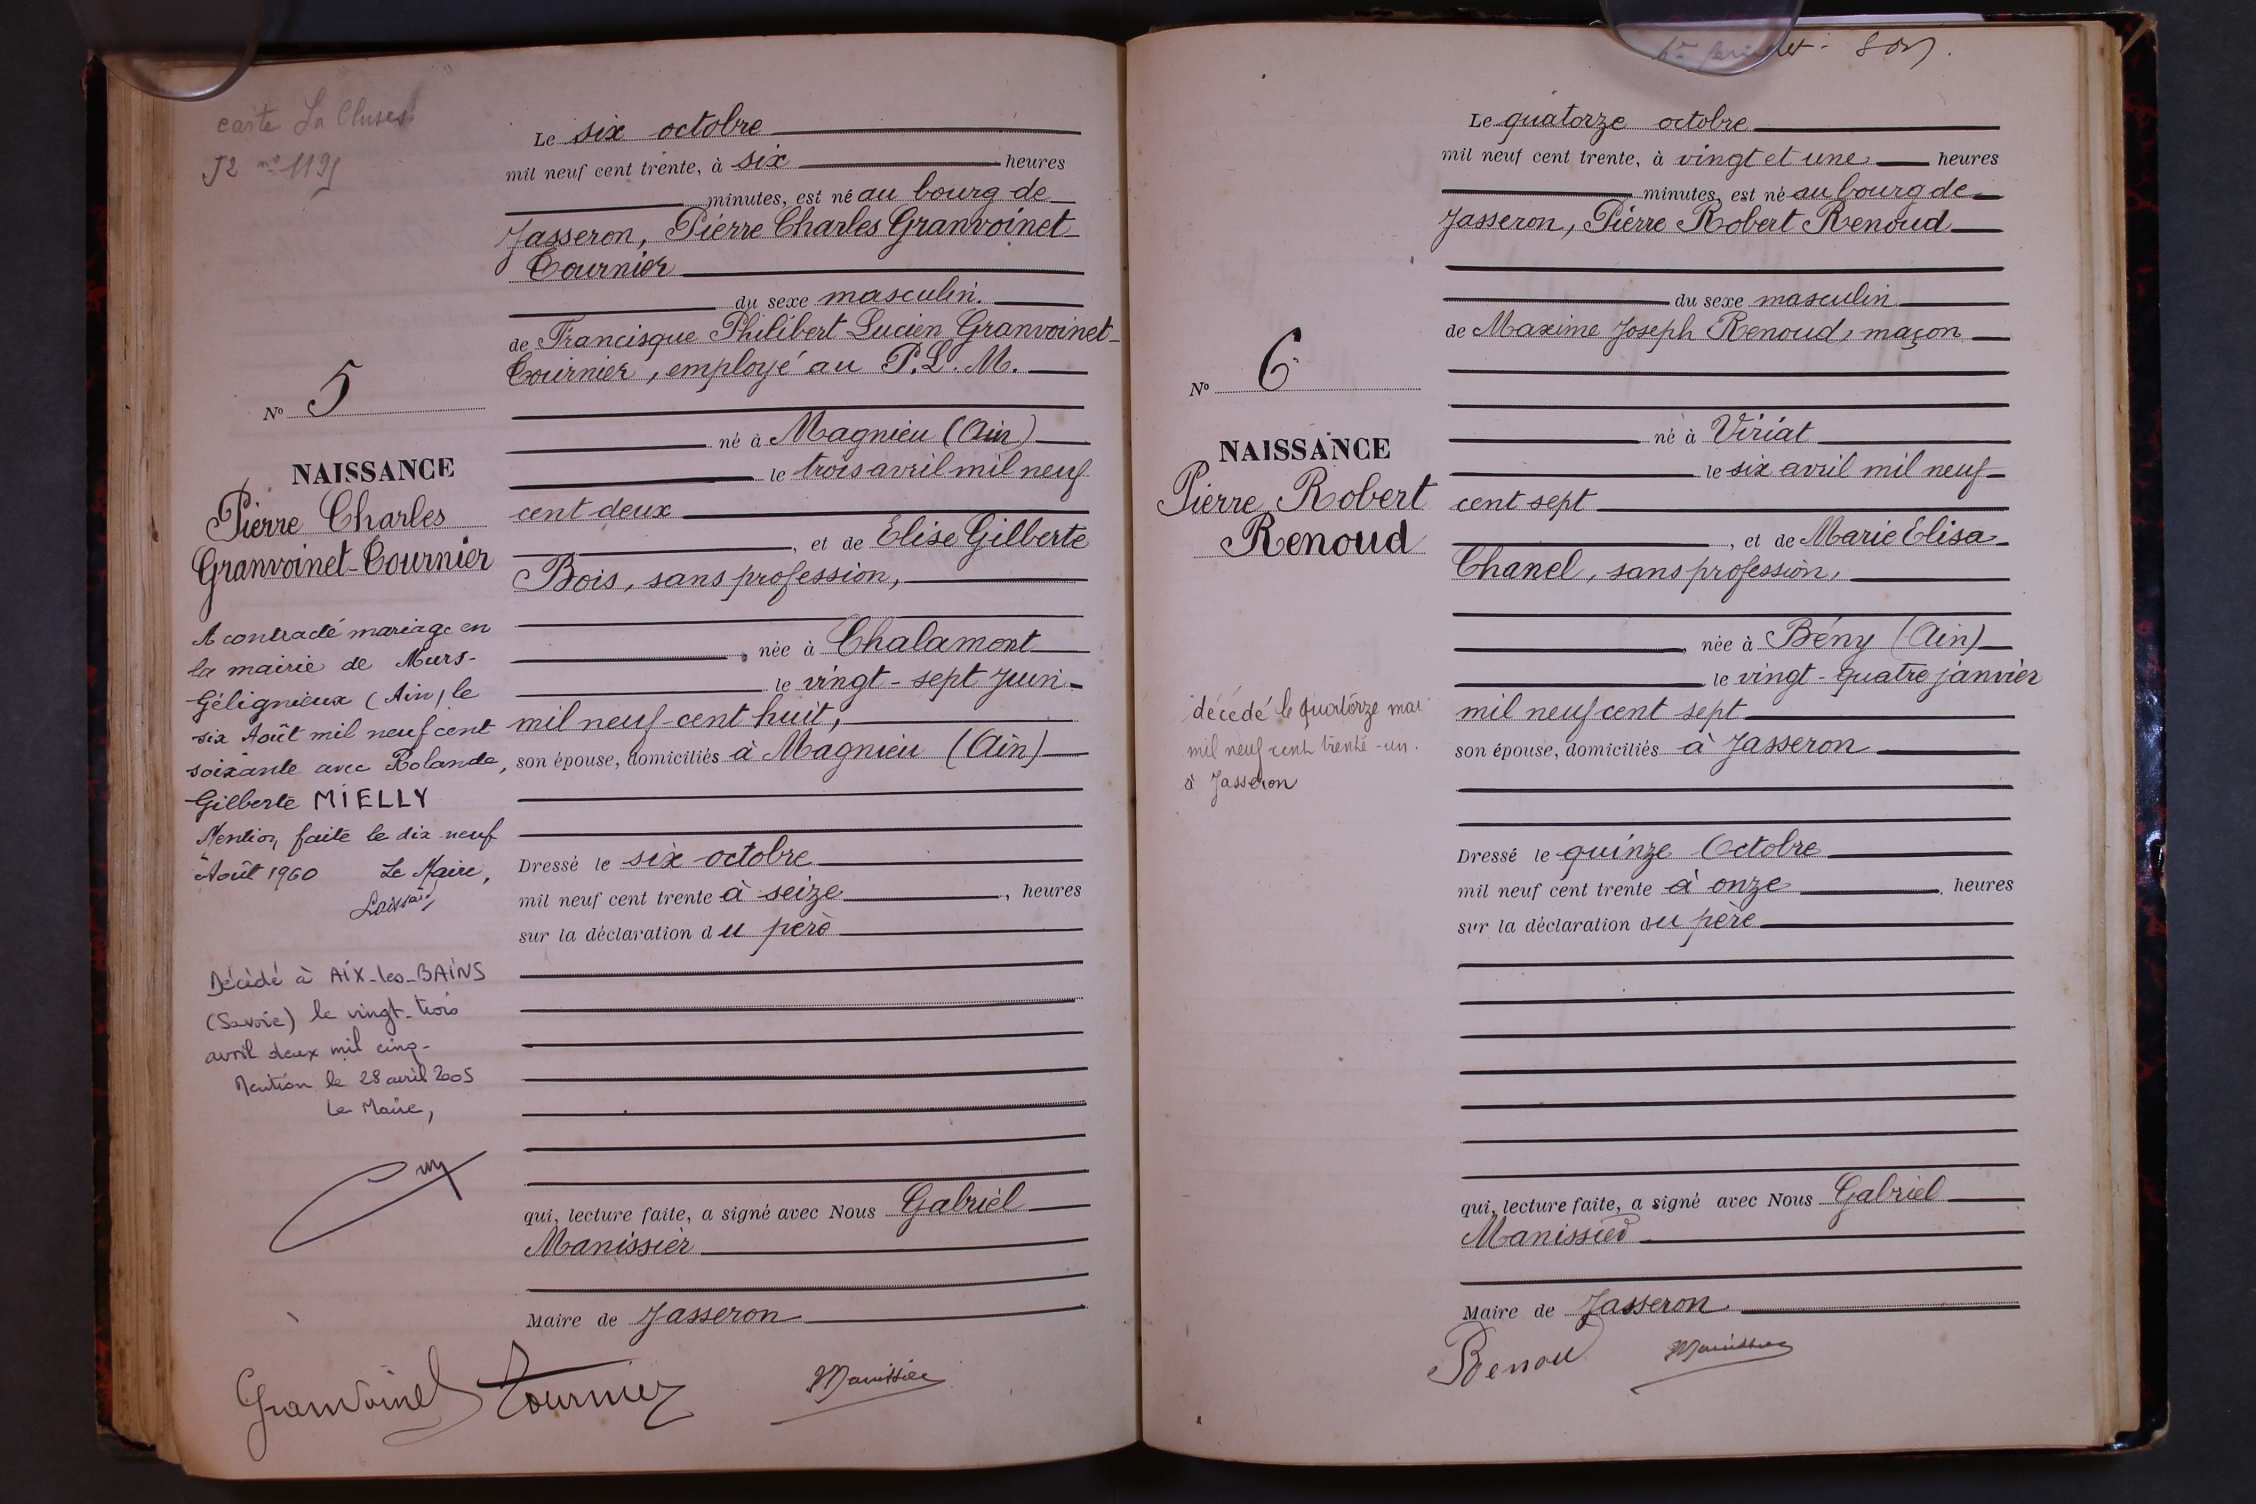 carte
J2 no 1195
No 5
NAISSANCE
Pierre Charles
Granvoinet-Tournier
A contracté mariage en
la mairie de Murs-
Gélignieux (Ain) le
six Août mil neuf cent
soixante avec Rolande,
Gilberte MIELLY
Mention faite le dix neuf
Août 1960 Le Maire,
Décédé à AIX-les-BAINS
(Savoie) le vingt-trois
avril deux mil cinq-
Mention le 28 avril 2005
Le Maire,
Le six octobre
mil neuf cent trente, à six heures
minutes, est né au bourg de
Jasseron, Pierre Charles Granvoinet-
Tournier
du sexe masculin.
de Francisque Philibert Lucien Granvoinet-
Tournier, employé au P.L.M.
né à Magnieu (Ain)
le trois avril mil neuf
cent deux
, et de Elise Gilberte
Bois, sans profession,
, née à Chalamont
le vingt-sept Juin
mil neuf-cent huit,
son épouse, domiciliés à Magnieu (Ain)
Dressé le six octobre
mil neuf cent trente à seize, heures
sur la déclaration du père
qui, lecture faite, a signé avec Nous Gabriel
Manissier
Maire de Jasseron
Granvoinet Tournier Manissier
No 6
NAISSANCE
Pierre Robert
Renoud
décédé le quatorze mai
mil neuf cent trente-un.
à Jasseron
Le quatorze octobre
mil neuf cent trente, à vingt et une heures
minutes, est né au bourg de
Jasseron, Pierre Robert Renoud
du sexe masculin
de Maxime Joseph Renoud, maçon
né à Viriat
le six avril mil neuf
cent sept
, et de Marie Elisa
Chanel, sans profession,
, née à Bény (Ain)
le vingt-quatre janvier
mil neuf cent sept
son épouse, domiciliés à Jasseron
Dressé le quinze Octobre
mil neuf cent trente à onze heures
sur la déclaration du père
qui, lecture faite, a signé avec Nous Gabriel
Manissier
Maire de Jasseron.
Renoud Manissier